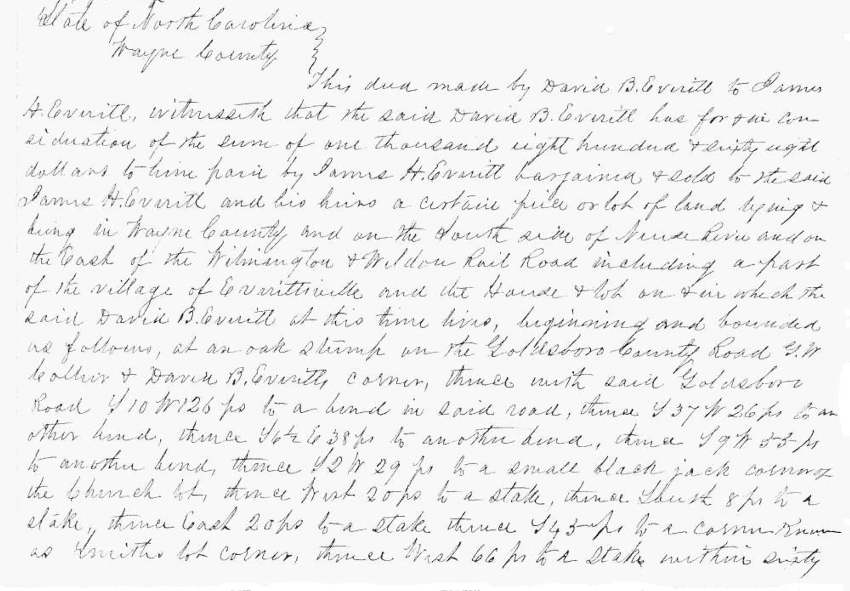 State of North Carolina }
Wayne County }
This deed made by David B. Everitt to James
H. Everitt, witnesseth that the said David B. Everitt has for & in con-
sideration of the sum of one thousand eight hundred & sixty eight
dollars to him paid by James H. Everitt bargained & sold to the said
James H. Everitt and his heirs a certain piece or lot of land lying &
being in Wayne County and on the South side of Neuse River and on
the East of the Wilmington & Weldon Rail Road including a part
of the village of Everittsville and the House & lot on & in which the
said David B. Everitt at this time lives, beginning and bounded
as follows, at an oak stump on the Goldsboro County Road G. W
Collier & David B. Everitts corner, thence with said Goldsboro
Road S 10 W 126 ps to a bend in said road, thence S 37 W 26 ps to an
other bend, thence S 6½ E 38 ps to another bend, thence S 9 W 55 ps
to another bend, thence S 2 W 29 ps to a small black jack corner of
the Church lot, thence West 20 ps to a stake, thence South 8 ps to a
stake, thence East 20 ps to a stake thence S 43 ps to a corner known
as Smiths lot corner, thence West 66 ps to a stake within sixty